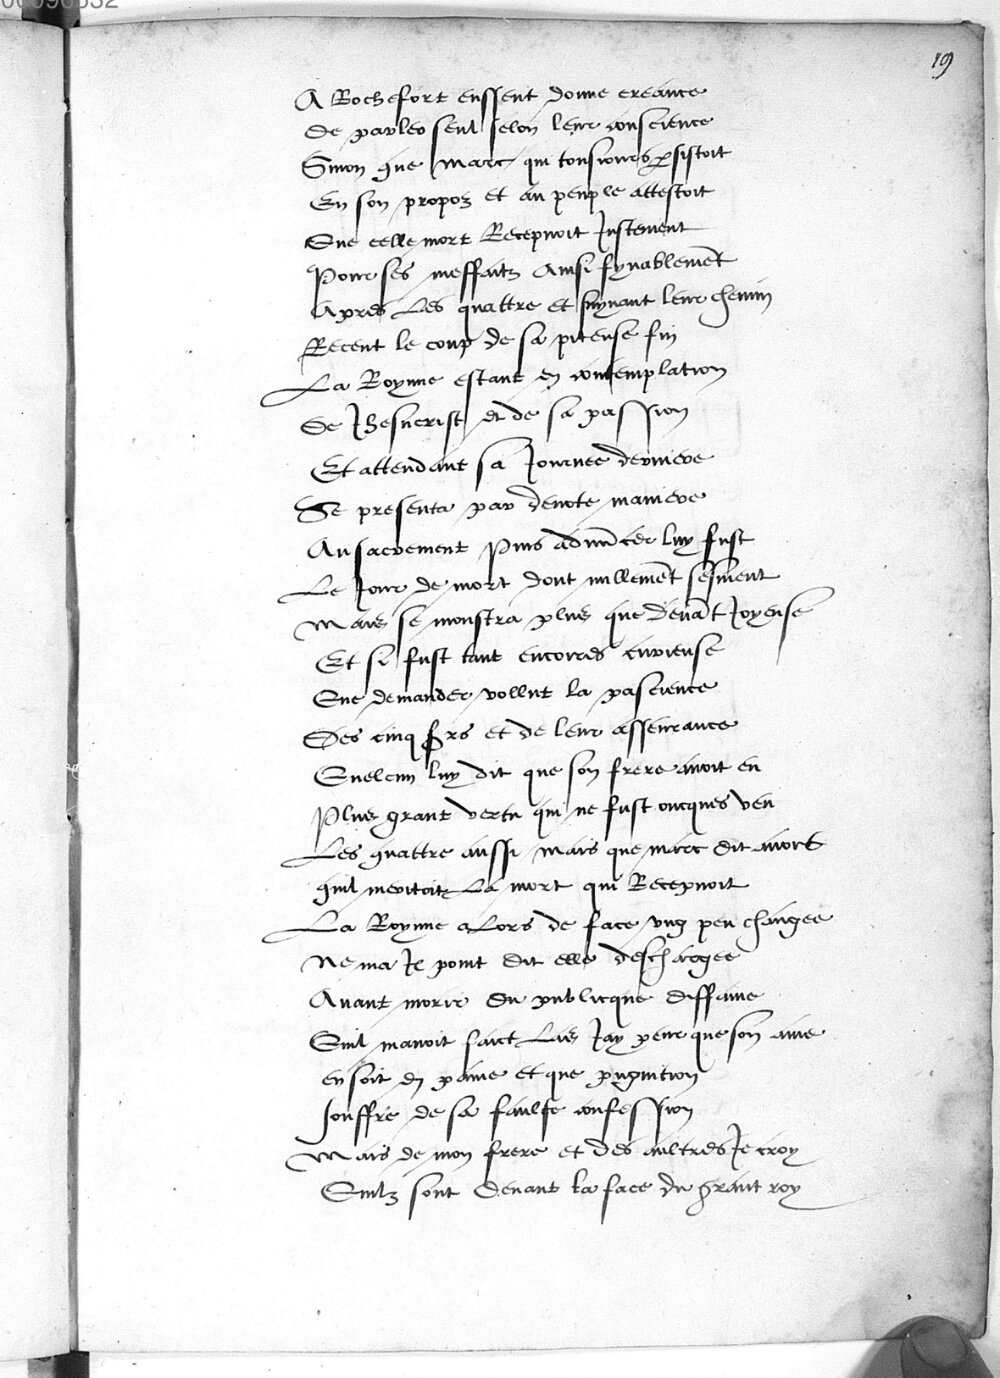 00090632
19
A Rochefort eussent donne creance
De parler seul selon leur conscience
Sinon que marc qui tousiours persistoit
En son propoz et au peuple attestoit
Que celle mort Recepuoit Justement
Pour ses meffaitz Ainsi fynablement
Apres Les quattre et suyuant leur chemin
Receut le coup de sa piteuse fin
La Roynne estant en contemplation
De Jhesucrist et de sa passion
Et attendant sa Journee derniere
Se presenta par deuote maniere
Au sacrement Puis adnuncer luy fust
Le Jour de mort dont nullement s'esmeut
Mais se monstra plus que deuant Joyeuse
Et si fust tant encorres curieuse
Que demander vollut la pascience
Des cinq frs et de leur asseurance
Quelcun luy dit que son frere auoit eu
Plus grant vertu qui ne fust oncques veu
Les quattre aussi mais que marc dit auoit
quil meritoit La mort qui Recepuoit
La Roynne aLors de face vng peu changee
Ne ma Je point dit elle deschargee
Auant morir Du publicque diffame
Quil mauoit faict Las Jay peur que son ame
en soit en paine et que pugnition
souffre de sa faulse confession
Mais de mon frere et des aultres Je croy
Quilz sont Deuant la face du grant roy